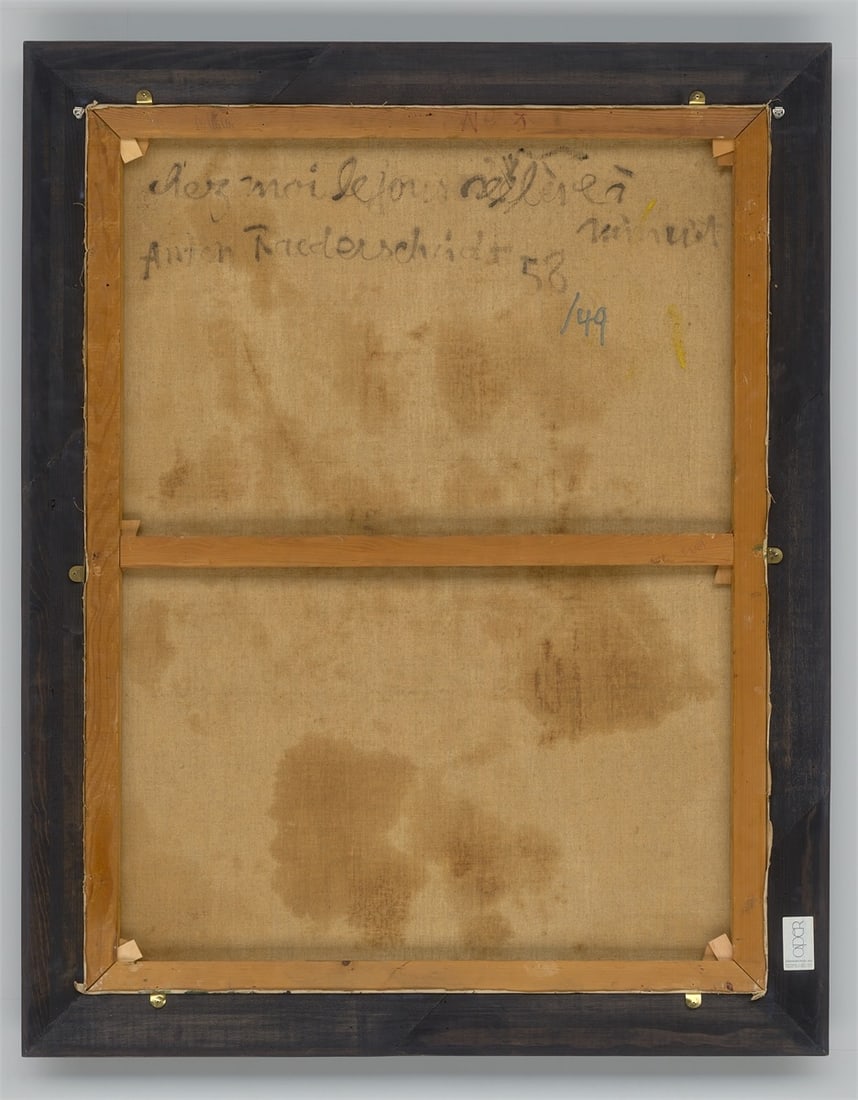 chez moi le jour se lève à
minuit
Anton Raederscheidt 58
/49